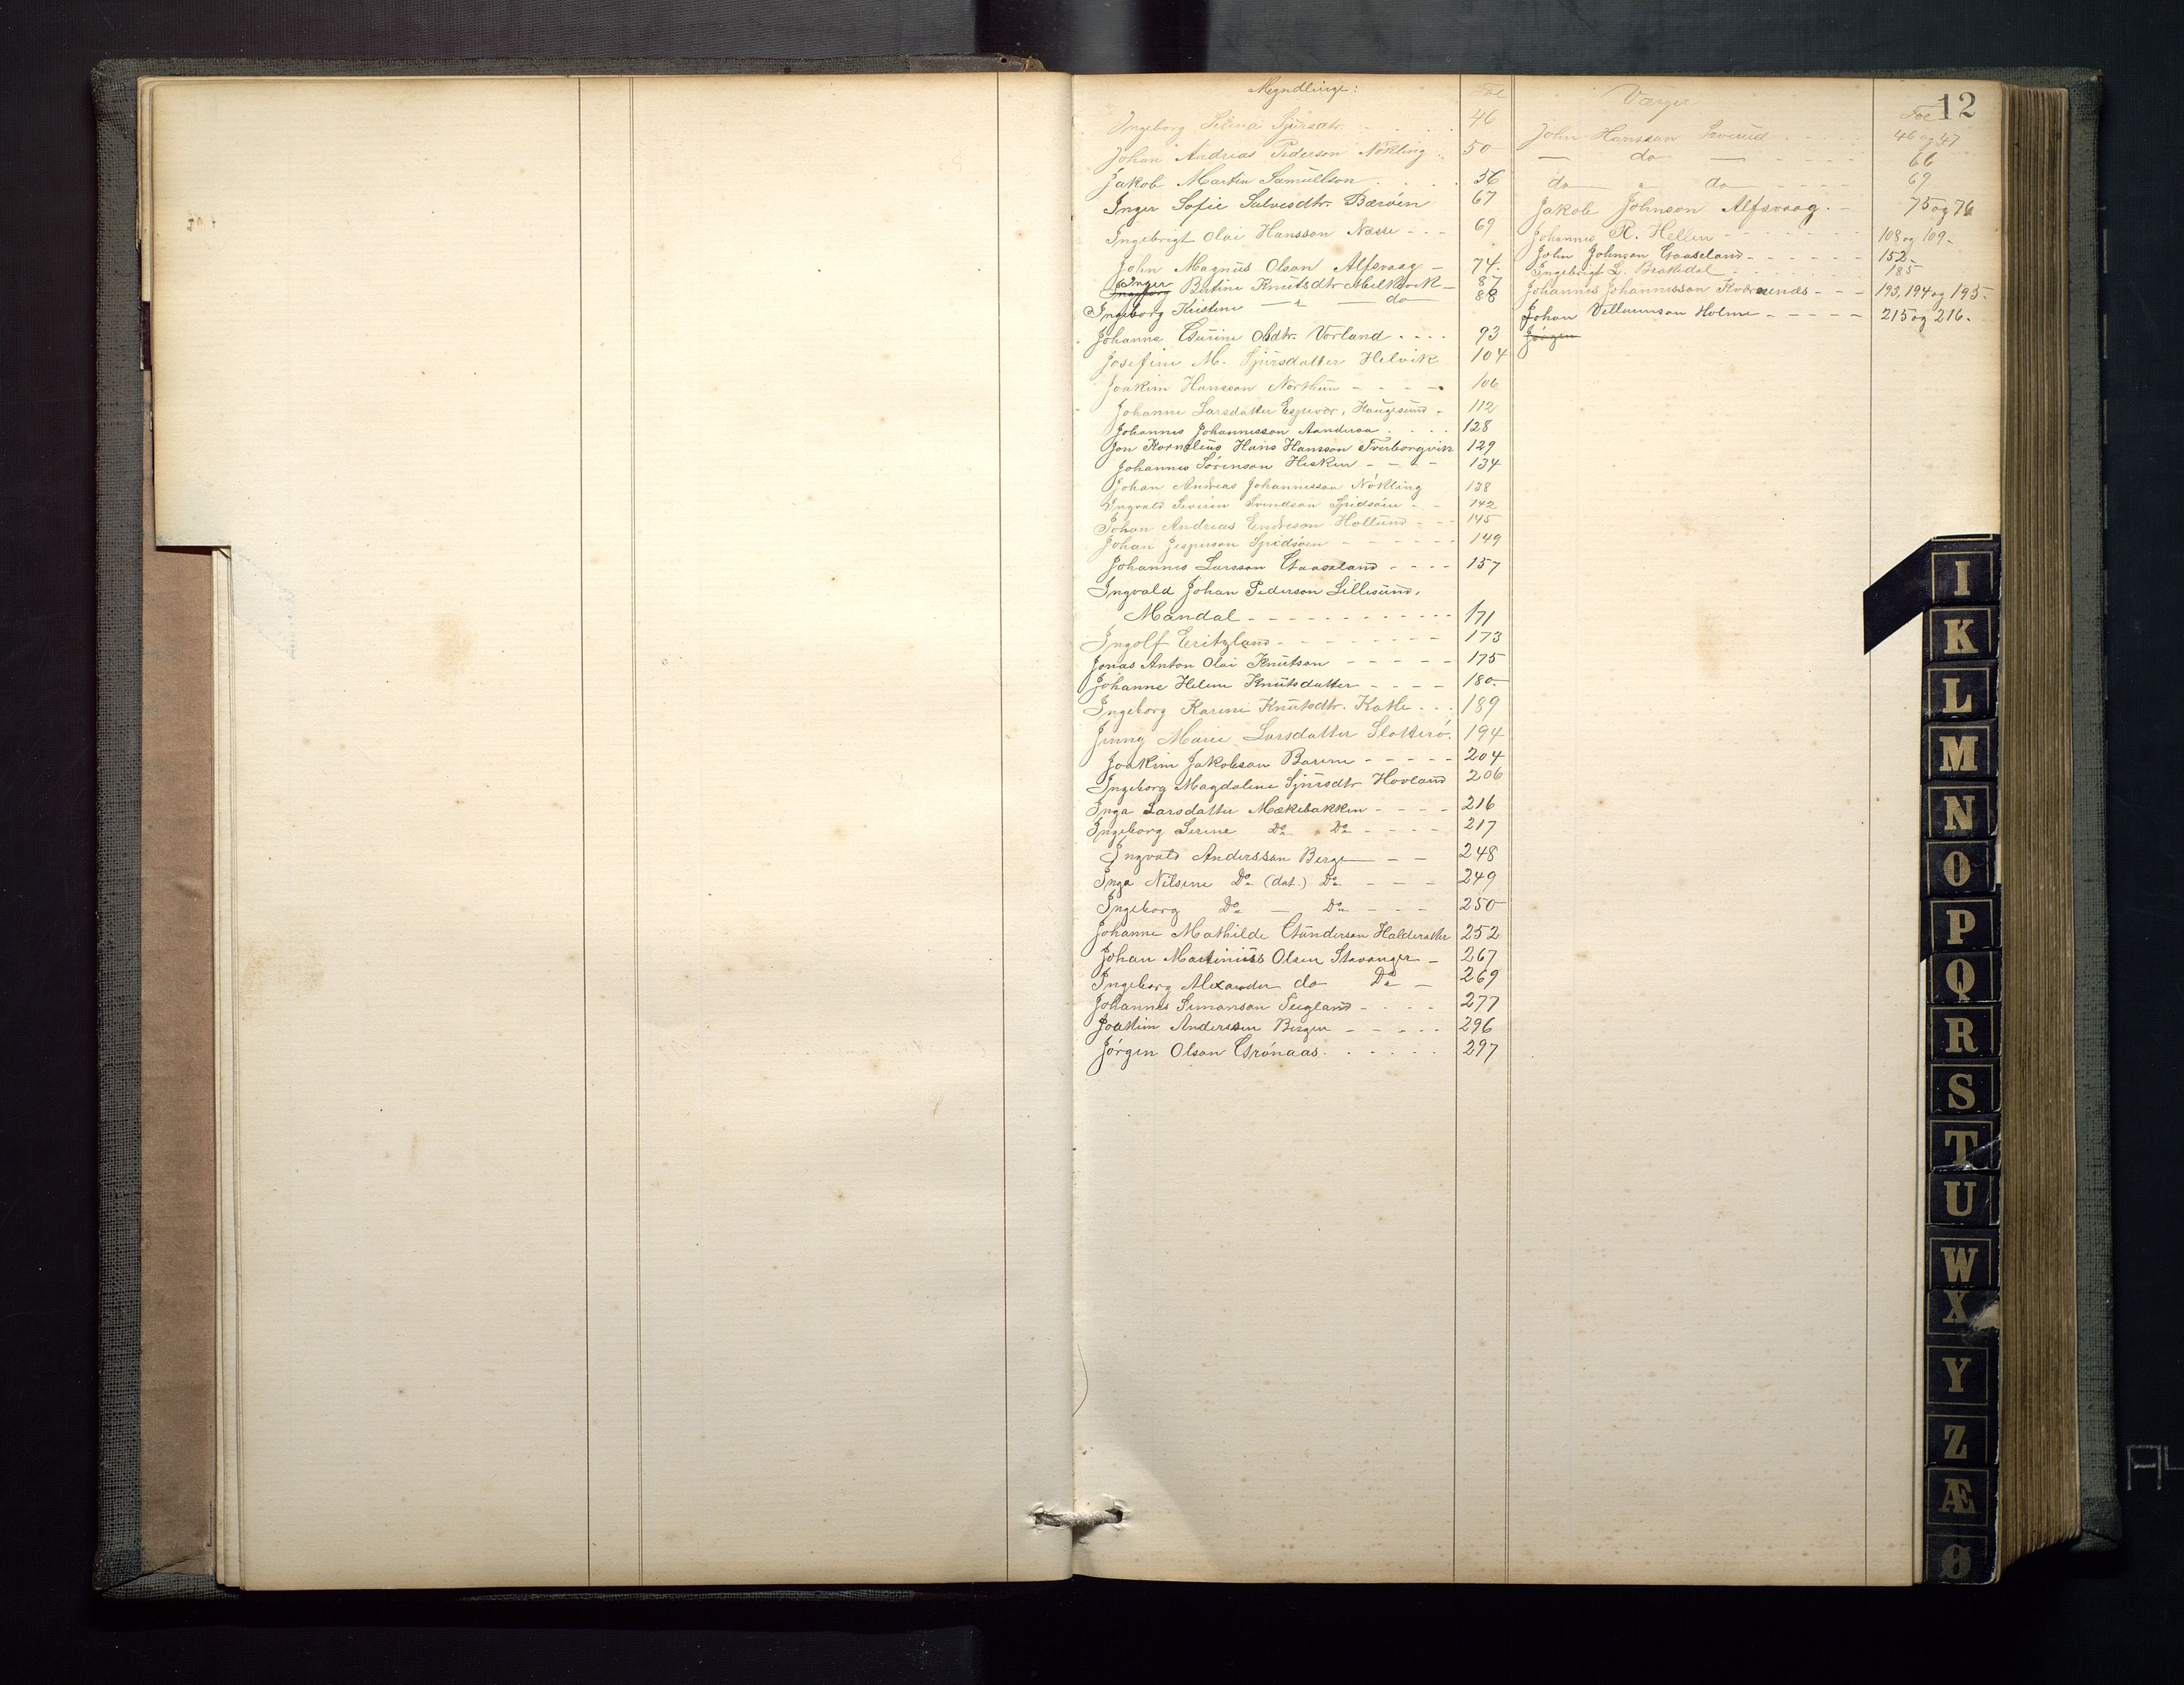 12
Myndlinge:
Fol
Ingeborg Serina Sjursdtr. - . . . 46
Johan Andreas Pederson Nökling . 50
Jakob Martin Samuelson . . . . 56
Inger Sofie Salvesdtr. Bæröen 67
Ingebrigt Olai Hansson Næsse - - - 69
John Magnus Olson Alfsvaag - 74.
Inger
Ingeborg Bertine Knutsdtr Mælkevik - 87
Ingeborg Kristine — " — do 88
Johanna Gurine Olsdtr. Vorland . . . . 93
Josefine M. Sjursdatter Helvik 104
Joakim Hansson Northun - - - - 106
Johanne Larsdatter Espevær, Haugesund - 112
Johannes Johannesson Aandersa . . . . 128
Jon Kornelius Hans Hansson Tverborgvik 129
Johannes Sörenson Hisken - - - - 134
Johan Andreas Johannesson Nökling 138
Ingvald Severin Svendson Spidsöen - - 142
Johan Andreas Endreson Hollund - - - 145
Johan Jesperson Spidsöen - - - - - - 149
Johannes Larsson Gaaseland - - - - 157
Ingvald Johan Pederson Lillesund,
Mandal - - - - - - - - - - - - 171
Ingolf Eritzland - - - - - - - - 173
Jonas Anton Olai Knutson - - - - - 175
Johanne Helene Knutsdatter - - - - 180
Ingeborg Karine Knutsdtr. Katle . . . 189
Jenny Marie Larsdatter Slotterö. 194
Joakim Jakobson Barene - - - - - 204
Ingeborg Magdalene Sjursdtr Hovland 206
Inga Larsdatter Mækebakken - - - - 216
Ingeborg Serine Do Do - - - - 217
Ingvald Andersson Berge - - 248
Inga Nilsine Do (dat.) Do - - - 249
Ingeborg Do — Do - - - 250
Johanne Mathilde Gunderson Halderaker 252
Johan Martinius Olsen Stavanger - 267
Ingeborg Alexander do Do - 269
Johannes Simonson Teigland - - - - 277
Joakim Andersen Bergen - - - - - 296
Jörgen Olson Grönaas . . . . . . 297
Værger
Fol
John Hansson Svennd . . . . 46 og 47
— do — - - - - 66
do " do - - - - 69
Jakob Johnson Alfsvaag. - 75 og 76
Johannes R. Hellen - - - - - - - 108 og 109.
John Johnson Gaaseland - - - - - - 152.
Ingebrigt L. Brakedal - - - - - - 185
Johannes Johannesson Kvernenes - - - 193, 194 og 195.
Johan Vellumson Holme - - - - - 215 og 216.
Jörgen
I
K
L
M
N
O
P
Q
R
S
T
U
W
X
Y
Z
Æ
Ø